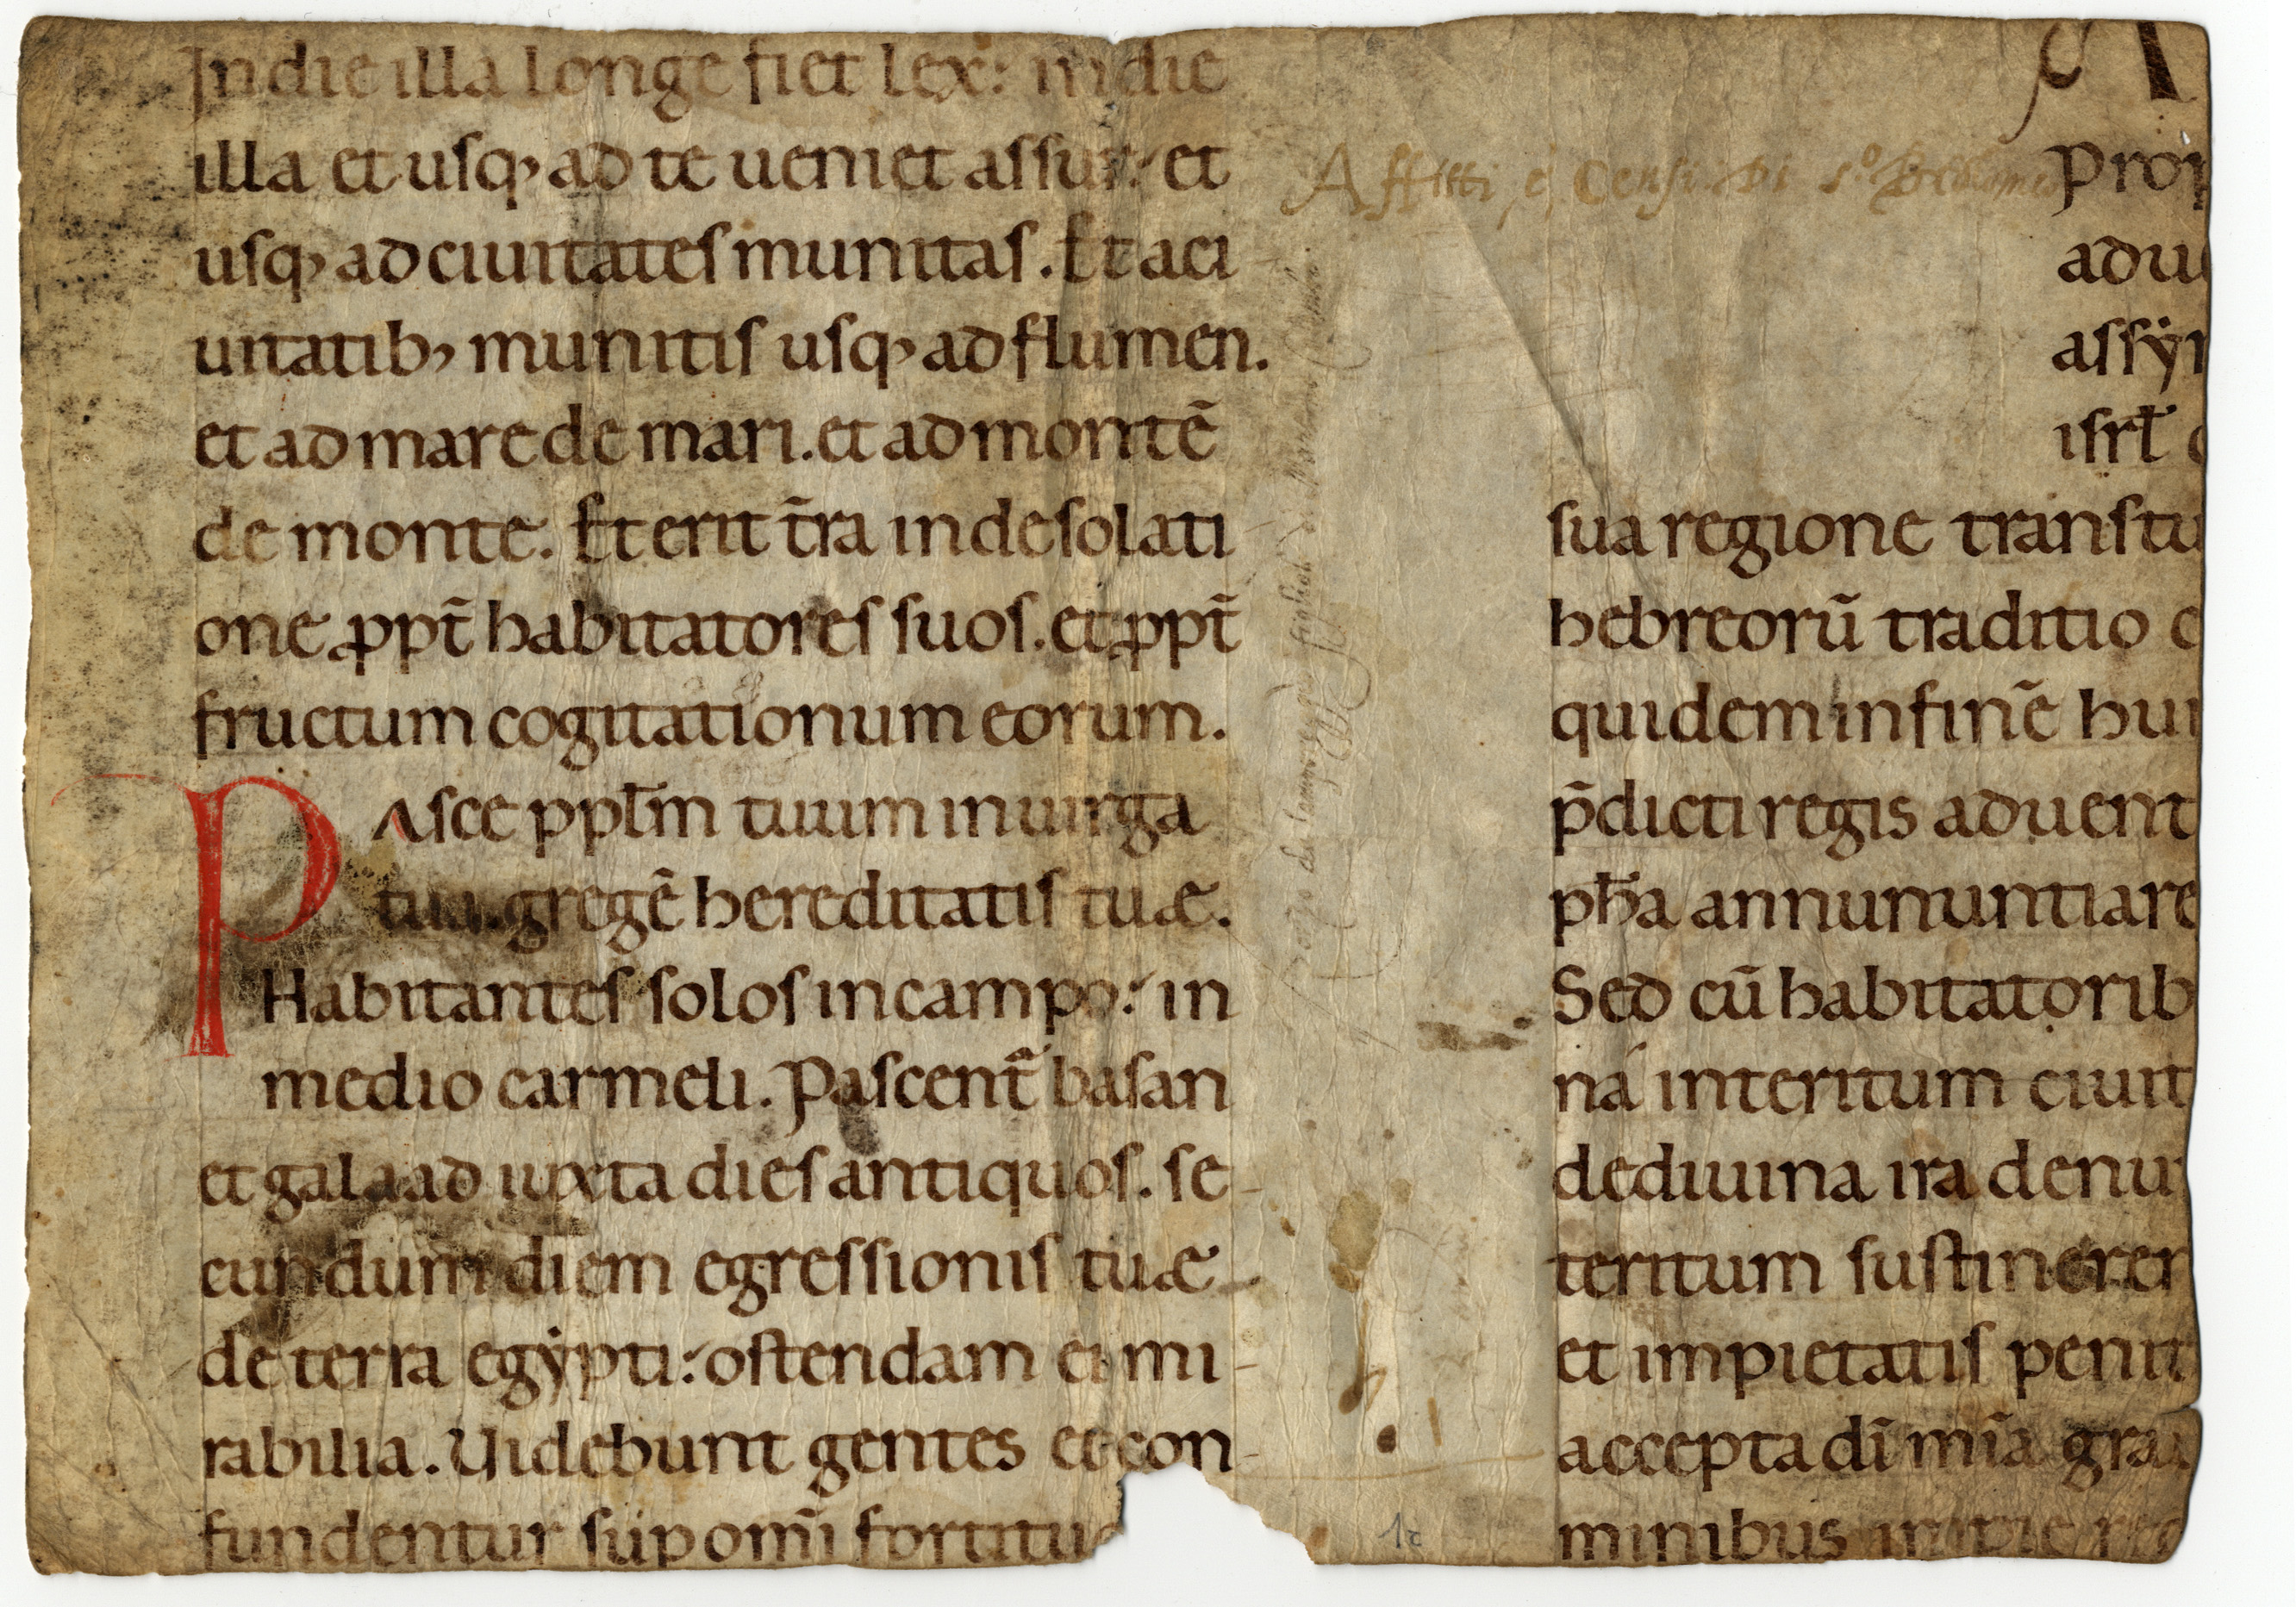 In die illa longe fiet lex: in die
illa et usq; ad te ueniet assur: et
usq; ad ciuitates munitas. Et a ci
uitatib; munitis usq; ad flumen.
et ad mare de mari. et ad montē
de monte. Et erit t̄ra in desolati
one ꝓpt̄ habitatores suos. et ꝓpt̄
fructum cogitationum eorum.
Pasce pplm̄ tuum in uirga
tua. gregē hereditatis tuæ.
Habitantes solos in campo: in
medio carmeli. Pascent᷑ basan
et galaad iuxta dies antiquos. se
cundum diem egressionis tuæ
de terra egẏpti: ostendam ei mi-
rabilia. Uidebunt gentes et con-
fundentur sup om̄i fortitu
Affitti e Censi di s.º
Prop
adu
assẏr
isrł
sua regione transtu
hebreorū traditio
quidem in finē hui
p̄dicti regis aduent
ph̄a annununtiare
Sed cū habitatorib
ná interitum ciuit
dediuina ira denu
teritum sustinerer
et impietatis penit
accepta dī mīa gra
minibus